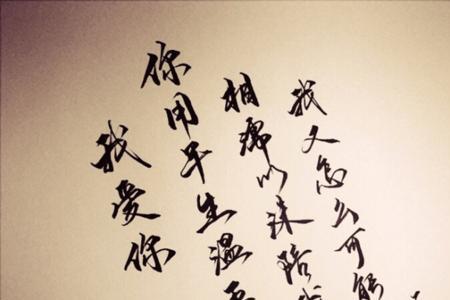 我又怎么可能
相濡以沫陪
你用半生温
我爱你